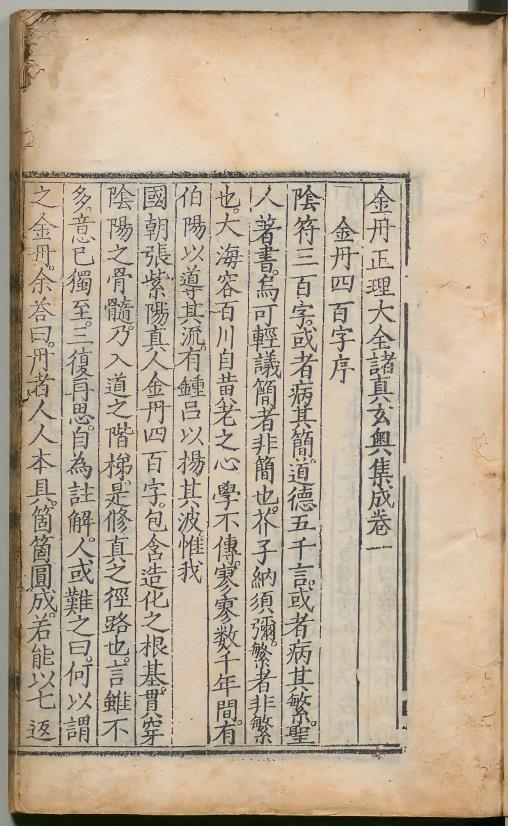 金丹正理大全諸真玄奧集成卷一
金丹四百字序
陰符三百字。或者病其簡。道德五千言。或者病其繁。聖
人著書。烏可輕議簡者非簡也。芥子納須彌。繁者非繁
也。大海容百川自黄老之心學不傳。寥寥数千年間。有
伯陽以導其流。有鍾呂以揚其波。惟我
國朝張紫陽真人金丹四百字。包含造化之根基。貫穿
陰陽之骨髓。乃入道之階梯。是修真之徑路也。言雖不
多意已獨至。三復再思。自為註解。人或難之曰。何以謂
之金丹。余荅曰。丹者人人本具。箇箇圓成。若能以七返